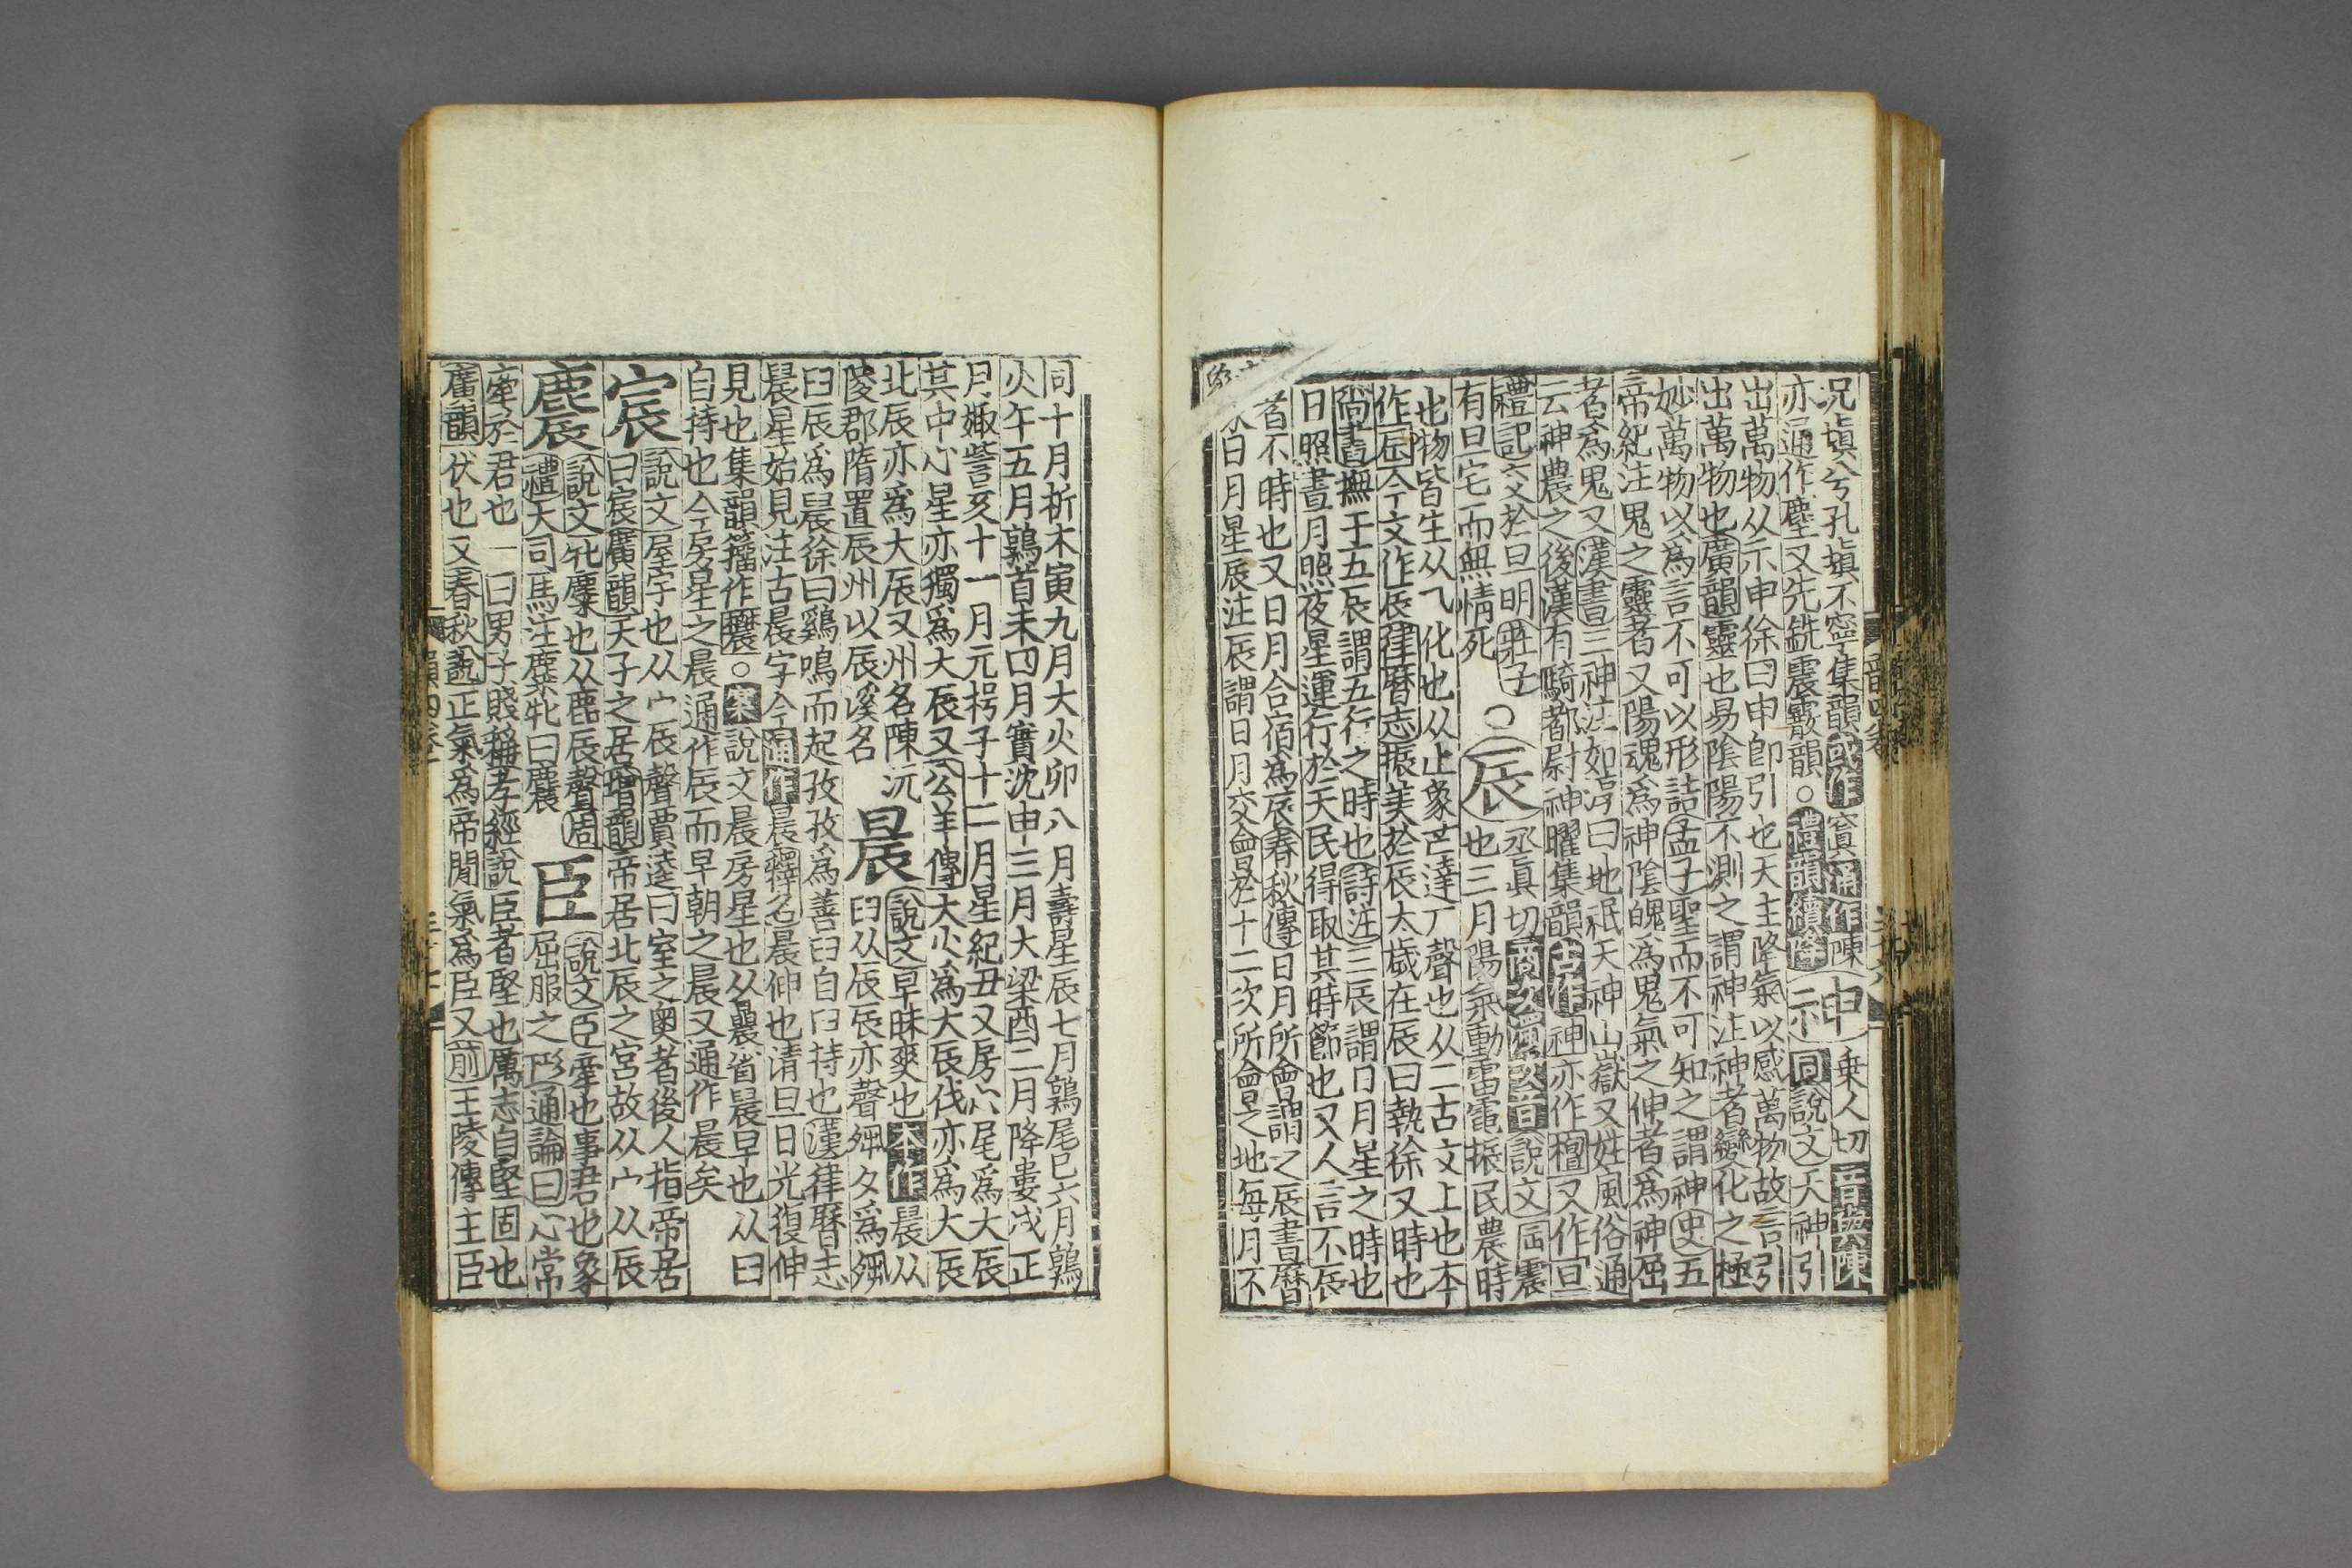 兄塡兮孔塡不寧集韻或作寘通作陳 神 乗人切音與陳
亦通作塵又先銑震霰韻○禮韻續降 示 同說文天神引
出萬物从示申徐曰申即引也天主降氣以感萬物故言引
出萬物也廣韻靈也易陰陽不測之謂神注神者變化之極
妙萬物以爲言不可以形詰孟子聖而不可知之謂神史五
帝紀注鬼之靈者又陽魂爲神陰魄爲鬼氣之伸者爲神屈
者爲鬼又漢書三神注如淳曰地祇天神山嶽又姓風俗通
云神農之後漢有騎都尉神曜集韻古作神亦作䄠又作旦
禮記交於旦明莊子
有旦宅而無情死 ○辰 丞眞切商次濁次音說文辰震
也三月陽氣動雷電振民農時
也物皆生从乀化也从止象芒達厂聲也从二古文上也本
作辰今文作辰律曆志振美於辰太歲在辰曰執徐又時也
尚書撫于五辰謂五行之時也詩注三辰謂日月星之時也
日照晝月照夜星運行於天民得取其時節也又人言不辰
者不時也又日月合宿爲辰春秋傳日月所會謂之辰書曆
日月星辰注辰謂日月交會於十二次所會之地每月不
同十月析木寅九月大火卯八月壽星辰七月鶉尾巳六月鶉
火午五月鶉首未四月實沈申三月大梁酉二月降婁戌正
月娵訾亥十一月元枵子十二月星紀丑又房心尾爲大辰
其中心星亦獨爲大辰又公羊傳大火爲大辰伐亦爲大辰
北辰亦爲大辰又州名陳沅
陵郡隋置辰州以辰溪名 晨 說文早昧爽也本作晨从
臼从辰辰亦聲夙夕爲夙
臼辰爲晨徐曰鷄鳴而起孜孜爲善臼自臼持也漢律曆志
晨星始見注古晨字今通作晨釋名晨伸也清旦日光復伸
見也集韻籀作䢅○案說文晨房星也从晶省晨早也从臼
自持也今房星之晨通作辰而早朝之晨又通作晨矣
宸 說文屋宇也从宀辰聲賈逵曰室之奥者後人指帝居
曰宸廣韻天子之居增韻帝居北辰之宮故从宀从辰
麎 說文牝麋也从鹿辰聲周
禮大司馬注麋牝曰麎 臣 說文臣牽也事君也象
屈服之形通論曰心常
牽於君也一曰男子賤稱孝經說臣者堅也厲志自堅固也
廣韻伏也又春秋說正氣爲帝閒氣爲臣又前王陵傳主臣